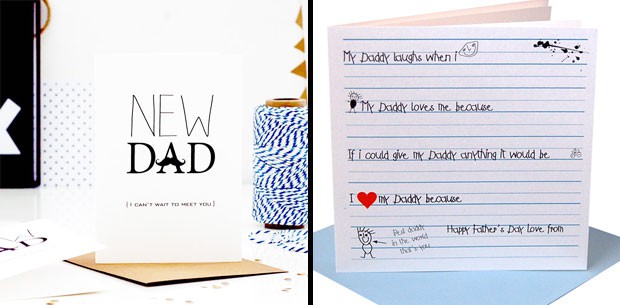 NEW
DAD
{ I CAN'T WAIT TO MEET YOU }
DAD
My Daddy laughs when i
My Daddy loves me because
If i could give my Daddy anything it would be
I my Daddy because
Best daddy
in the world
that's you
Happy Father's Day Love from